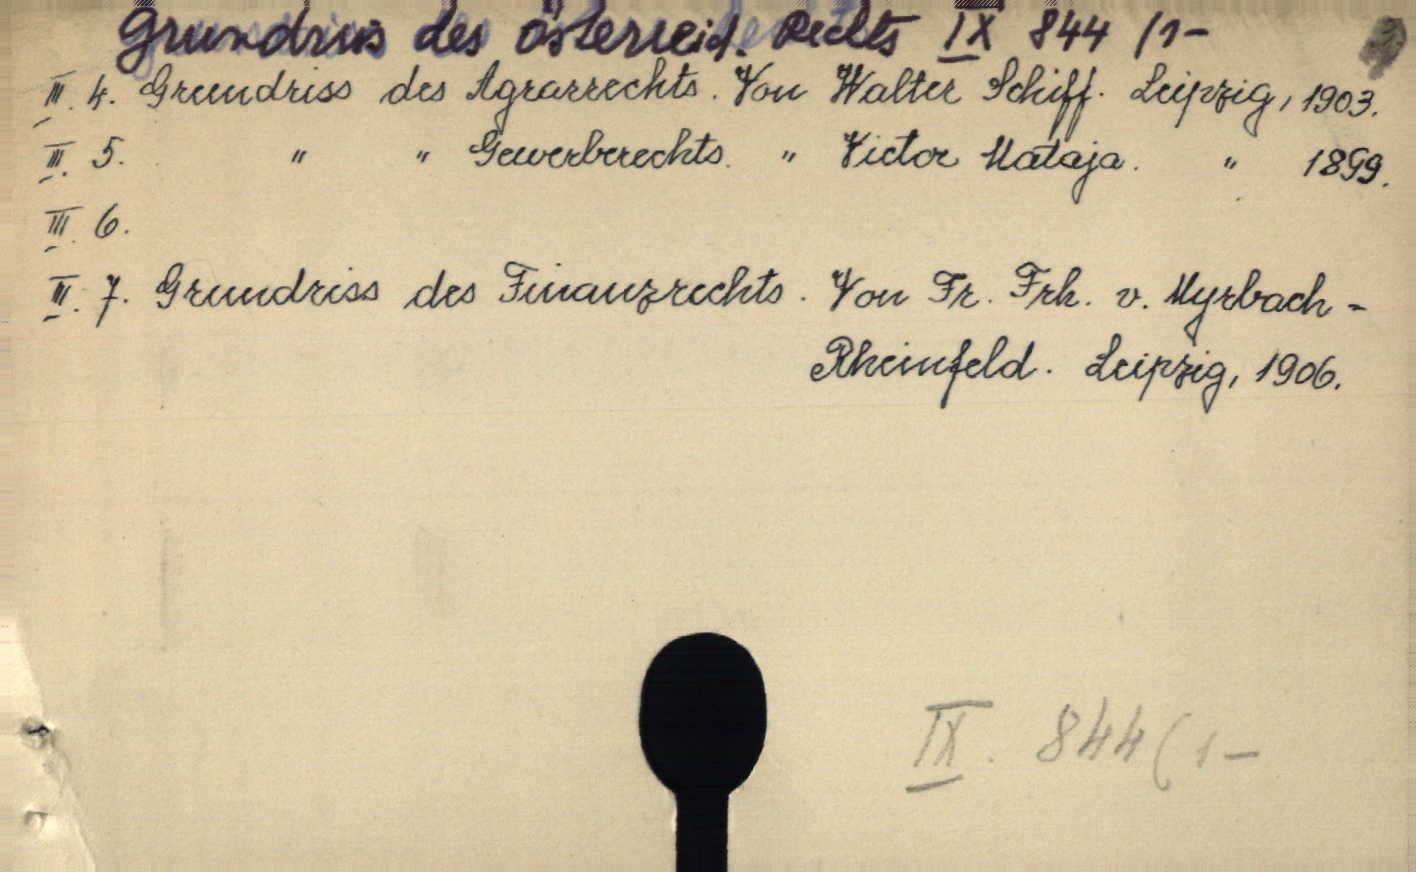 Grundriss des österreich. Rechts IX 844 (1-
III. 4. Grundriss des Agrarrechts. Von Walter Schiff. Leipzig, 1903.
III. 5. " " Gewerberechts. " Victor Mataja. " 1899.
III. 6.
III. 7. Grundriss des Finanzrechts. Von Fr. Frh. v. Myrbach-
Rheinfeld. Leipzig, 1906.
IX. 844 (1-